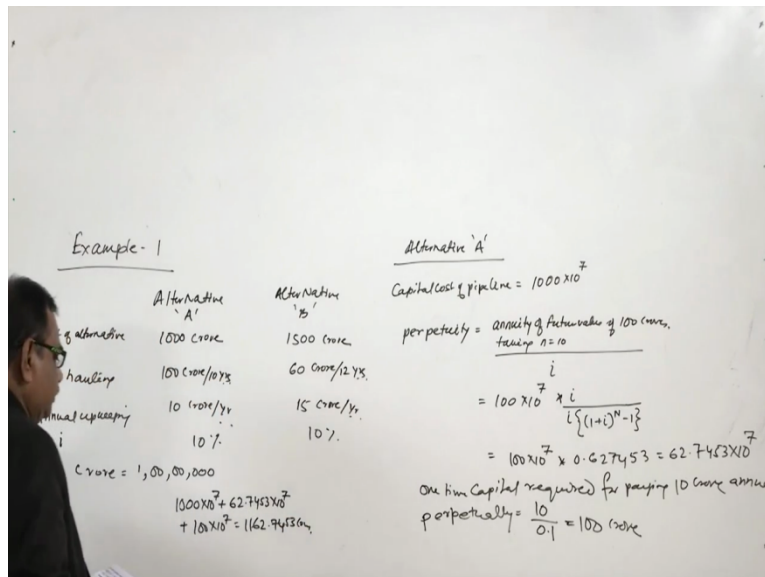 Example - 1
Alternative 'A'
Alternative 'B'
of alternative 1000 Crore 1500 Crore
hauling 100 Crore/10 yrs. 60 Crore/12 yrs.
nnual upkeeping 10 Crore/yr 15 Crore/yr.
i 10% 10%.
Crore = 1,00,00,000
1000x10^7 + 62.7453x10^7
+ 100x10^7 = 1162.7453 Crore
Alternative 'A'
Capital cost of pipeline = 1000x10^7
perpetuity = annuity of future value of 100 crores,
taking n=10
i
= 100x10^7 x i
i{(1+i)^N-1}
= 100x10^7 x 0.627453 = 62.7453x10^7
One time Capital required for paying 10 Crore annu
perpetually = 10/0.1 = 100 Crore